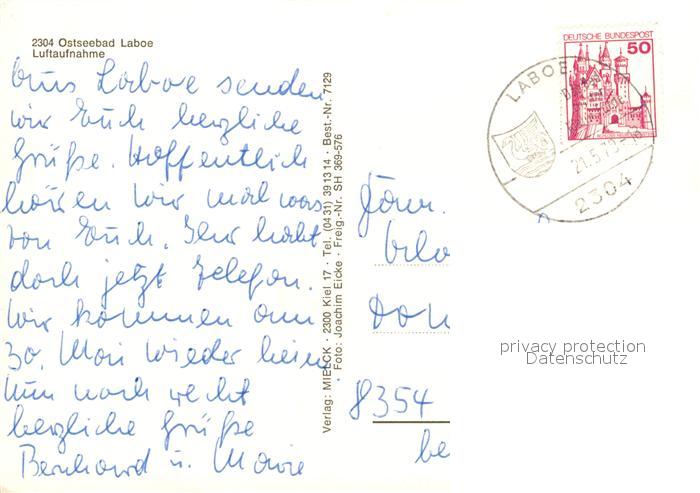 2304 Ostseebad Laboe
Luftaufnahme
Aus Laboe senden
wir Euch herzliche
Grüße. Hoffentlich
hören wir mal was
von Euch. Ihr habt
doch jetzt Telefon.
Wir kommen am
30. Mai wieder heim
Nun noch recht
herzliche Grüße
Bernhard u. Marie
Verlag: MIELCK · 2300 Kiel 17 · Tel. (0431) 391314 · Best.-Nr. 7129
Foto: Joachim Eicke · Freig.-Nr. SH 369-576
DEUTSCHE BUNDESPOST
50
LABOE
21.5.79
2304
Fam.
Don
8354
be
privacy protection
Datenschutz